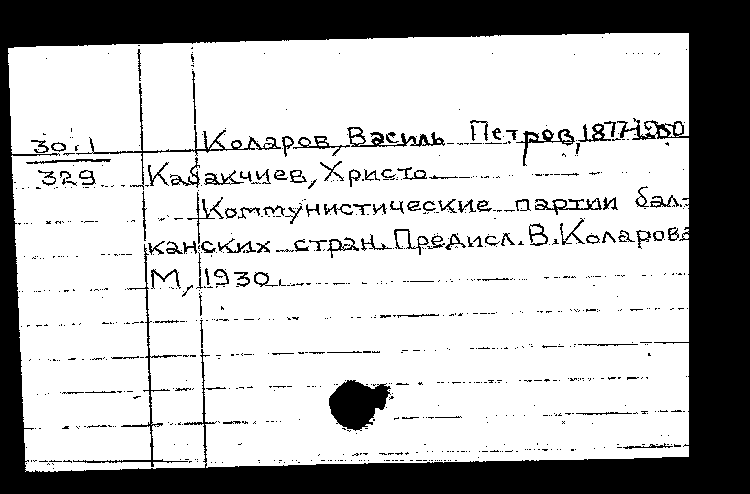 30.1 Коларов, Василь Петров, 1877-1950
329 Кабакчиев, Христо.
Коммунистические партии бал-
канских стран. Предисл. В. Коларова
М, 1930.